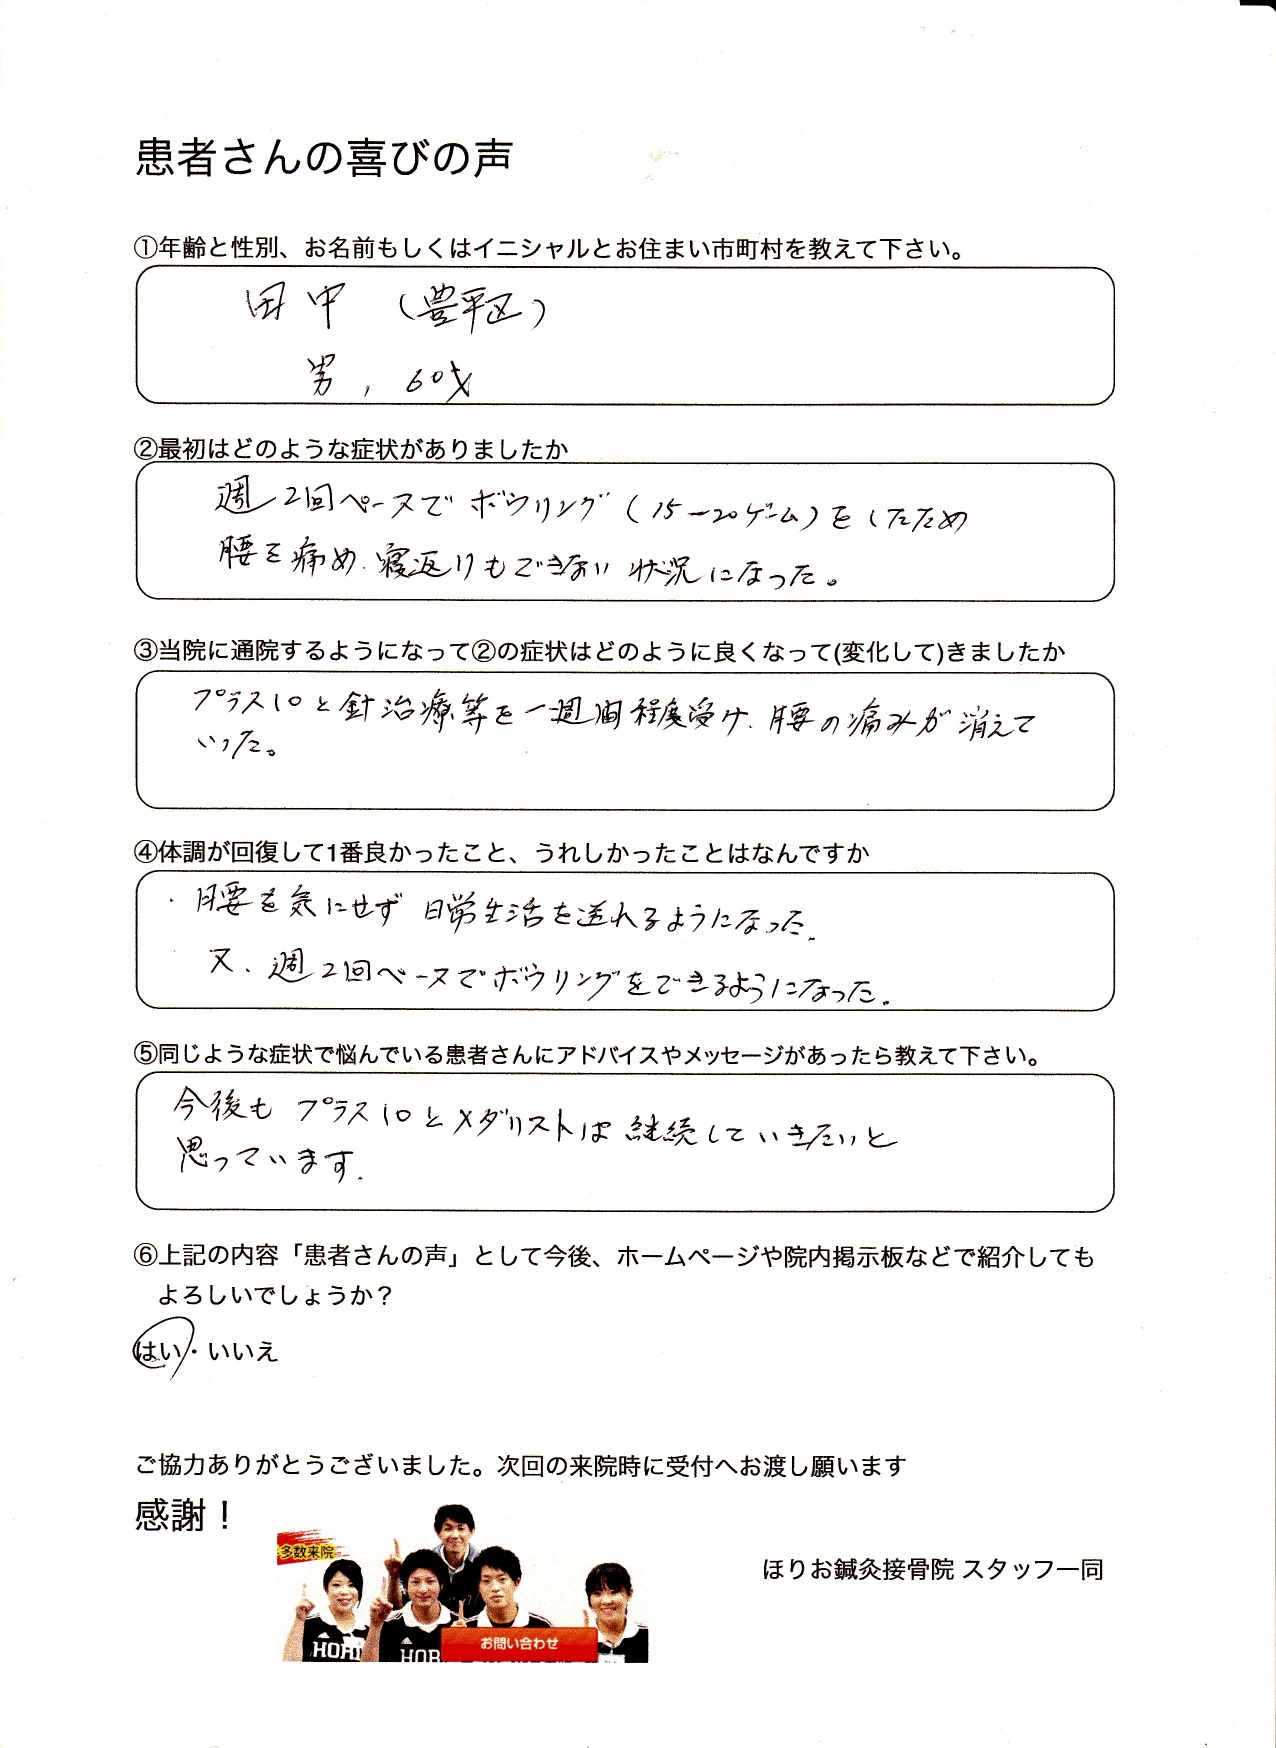 患者さんの喜びの声
①年齢と性別、お名前もしくはイニシャルとお住まい市町村を教えて下さい。
田中 (豊平区)
男, 60才
②最初はどのような症状がありましたか
週2回ペースでボウリング(15〜20ゲーム)をしたため
腰を痛め、寝返りもできない状況になった。
③当院に通院するようになって②の症状はどのように良くなって(変化して)きましたか
プラス10と針治療等を一週間程度受け、腰の痛みが消えて
いった。
④体調が回復して1番良かったこと、うれしかったことはなんですか
・腰を気にせず日常生活を送れるようになった.
又、週2回ペースでボウリングをできるようになった.
⑤同じような症状で悩んでいる患者さんにアドバイスやメッセージがあったら教えて下さい。
今後もプラス10とメダリストは継続していきたいと
思っています.
⑥上記の内容「患者さんの声」として今後、ホームページや院内掲示板などで紹介しても
よろしいでしょうか?
はい・いいえ
ご協力ありがとうございました。次回の来院時に受付へお渡し願います
感謝!
多数来院
ほりお鍼灸接骨院 スタッフ一同
お問い合わせ
HORI
HOR